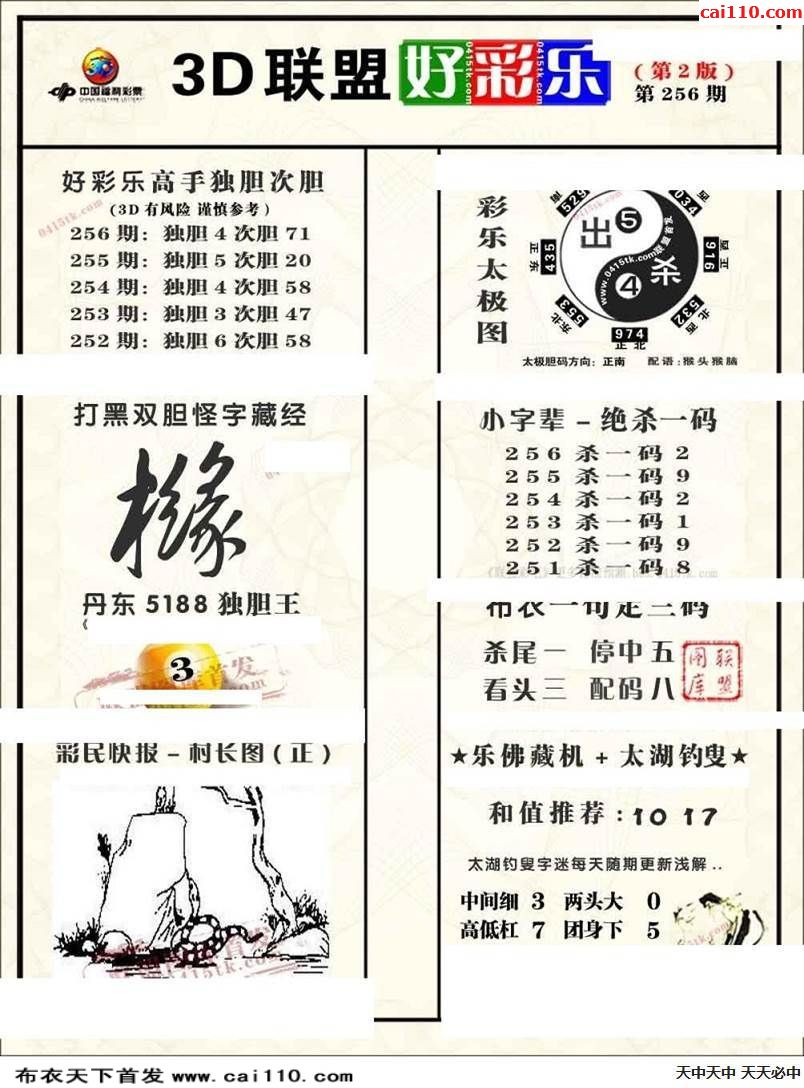 cai110.com
中国福利彩票
CHINA WELFARE LOTTERY
3D联盟好彩乐
(第2版)
第256期
好彩乐高手独胆次胆
(3D有风险 谨慎参考)
256期: 独胆4次胆71
255期: 独胆5次胆20
254期: 独胆4次胆58
253期: 独胆3次胆47
252期: 独胆6次胆58
打黑双胆怪字藏经
丹东5188独胆王
3
彩民快报-村长图(正)
彩乐太极图
529
034
正东 435
出5
杀4
www.0415tk.com联盟首发
916 正西
东北 553
974
正北
532 西北
太极胆码方向: 正南 配语: 猴头猴脑
小字辈-绝杀一码
256杀一码2
255杀一码9
254杀一码2
253杀一码1
252杀一码9
251杀一码8
布衣一句定三码
杀尾一 停中五
看头三 配码八
联盟图库
★乐佛藏机+太湖钓叟★
和值推荐:10 17
太湖钓叟字迷每天随期更新浅解..
中间细 3 两头大 0
高低杠 7 团身下 5
布衣天下首发 www.cai110.com
天中天中 天天必中